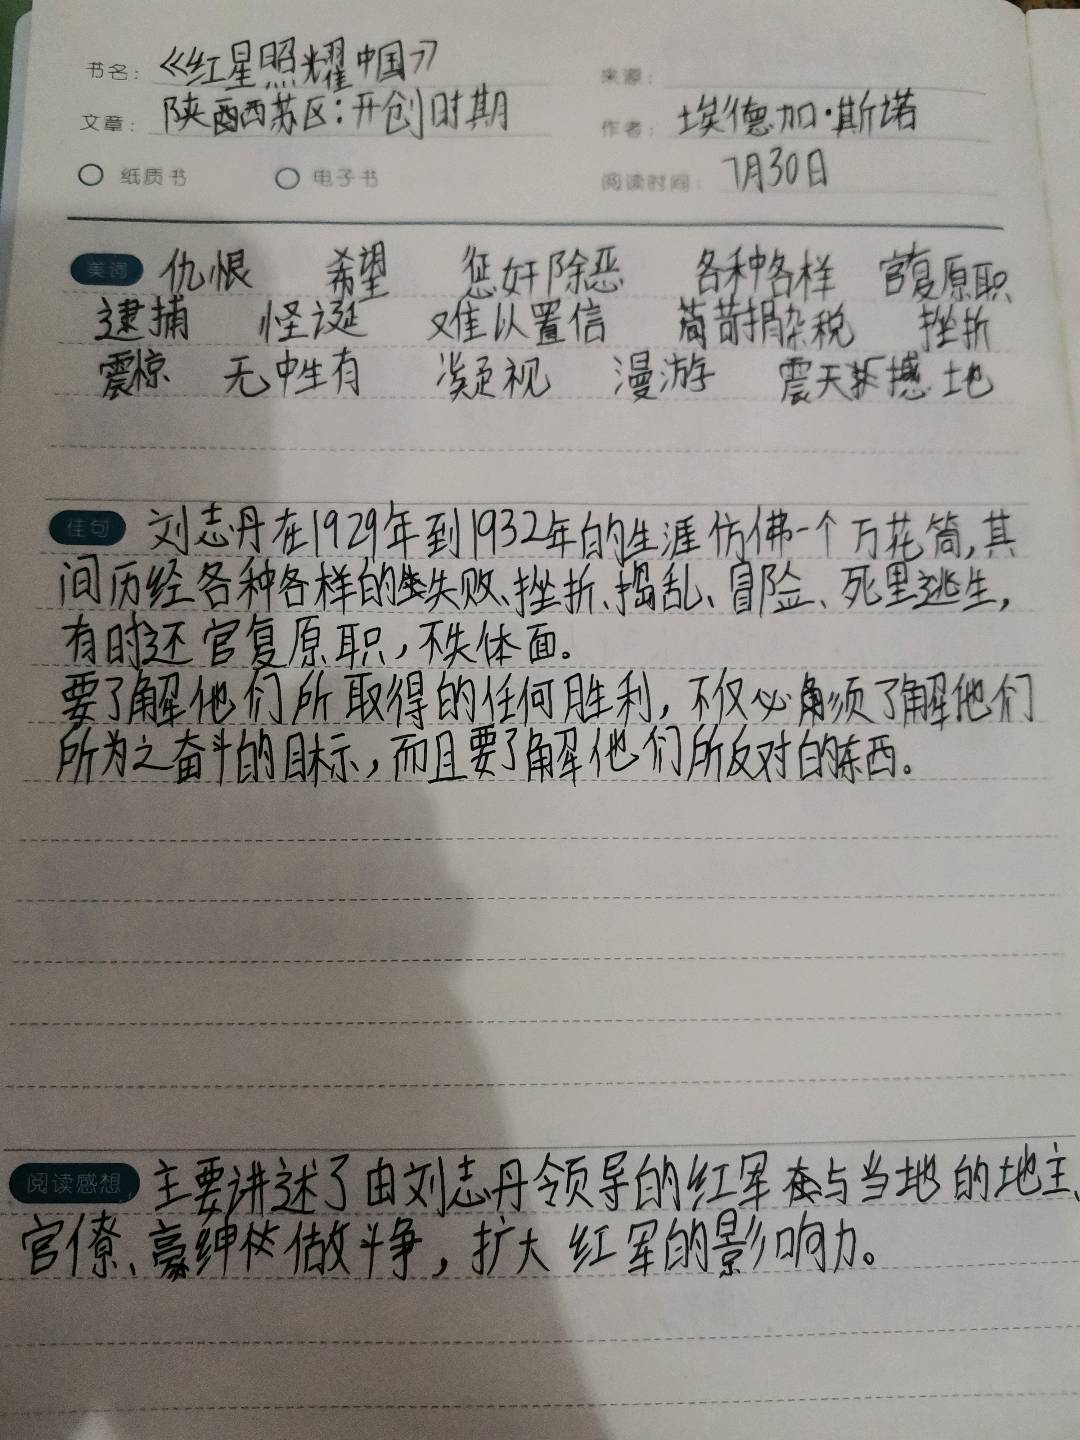 书名： 《红星照耀中国》 来源：
文章： 陕西苏区：开创时期 作者： 埃德加·斯诺
纸质书 电子书 阅读时间： 7月30日
美词 仇恨 希望 惩奸除恶 各种各样 官复原职
逮捕 怪诞 难以置信 苛捐杂税 挫折
震惊 无中生有 凝视 漫游 震天撼地
佳句 刘志丹在1929年到1932年的生涯仿佛一个万花筒,其
间历经各种各样的失败、挫折、捣乱、冒险、死里逃生,
有时还官复原职，不失体面。
要了解他们所取得的任何胜利，不仅必须了解他们
所为之奋斗的目标，而且要了解他们所反对的东西。
阅读感想 主要讲述了由刘志丹领导的红军与当地的地主、
官僚、豪绅做斗争，扩大红军的影响力。